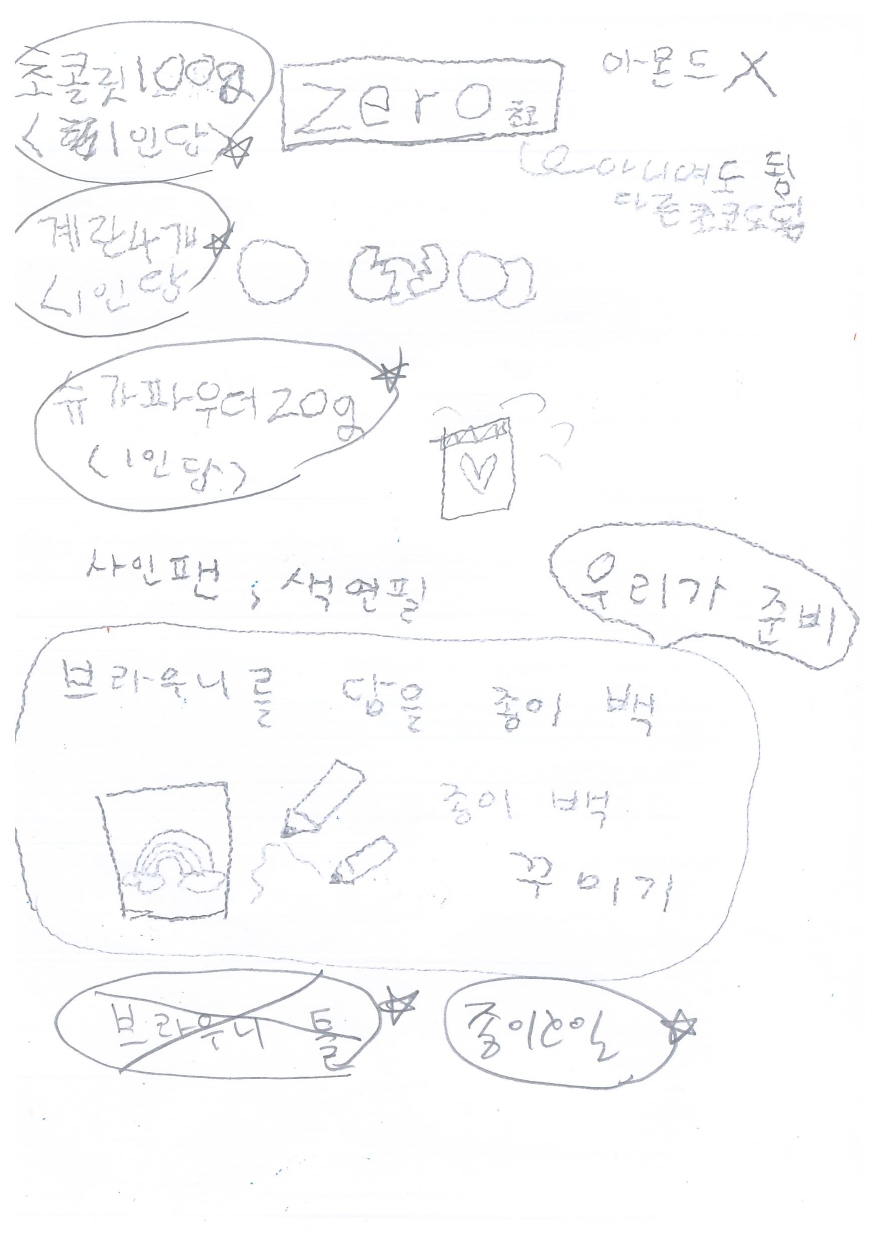 초콜릿100g
<1인당>
zero 초코
아몬드 X
아니여도 됨
다른초코도됨
계란4개
<1인당
슈가파우더20g
<1인당>
사인팬, 색연필
우리가 준비
브라우니를 담을 종이 백
종이 백
꾸미기
브라우니 틀
종이호일